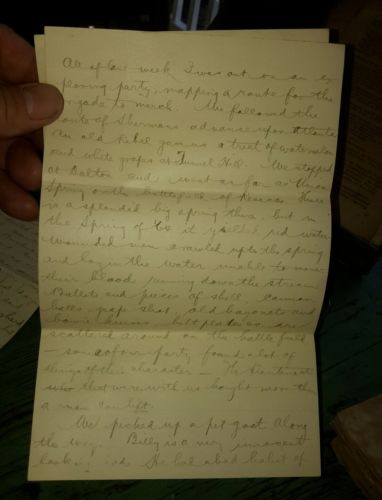 All of last week I was out on an ex
ploring party, mapping a route for the
brigade to march. We followed the
route of Shermans advance upon Atlanta
An old Rebel gave us a treat of watermelon
and white grapes at Tunnel Hill. We stopped
at Dalton and went as far as
Spring on the battlefield of Resaca There
is a splendid big spring there, but in
the Spring of 64 it red water
Wounded men crawled up to the spring
and lay in the water unable to move
their blood running down the stream
Bullets and pieces of shell, cannon
balls, grape shot old bayonets and
knives, are
scattered around on the battle field
- some of our party found a lot of
things of this character - The
that were with us bought more than
a man can lift.
We picked up a pet goat along
the way. Billy is a very innocent
looking He had a bad habit of